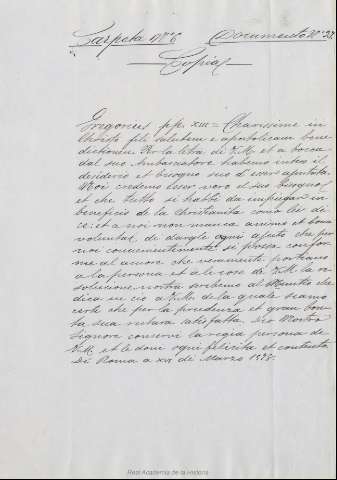 Carpeta Nº 6 Documento Nº 27.
Copia
Gregorius p.p. XIII = Charissime in
Christo fili salutem et apostolicam bene
dictionem Per la letra de V.M. et a bocca
dal suo Ambasciatore habemo inteso il
desiderio et bisogno suo d'esser ajutata
Noi credemo esser vero il suo bisogno,
et che tutto si habbi da impiegar in
beneficio de la Christianita como lei di-
ce: et a noi non manca animo et bona
voluntad, de dargle ogni ajuto che per
noi convenientemente si possa confor-
me al amore che veramente portiamo
a la persona et a le cose de V.M. la re
solucione nostra scribemo al Nuntio che
dica in cio a V.M. de la quale seamo
certi che per la prudenza et gran bon-
ta sua restara satisfatta. Dio Nostro
Signore conservi la regia persona de
V.M. et le doni ogni felicita et contento
Di Roma a XVI de Marzo 1578.
Real Academia de la Historia